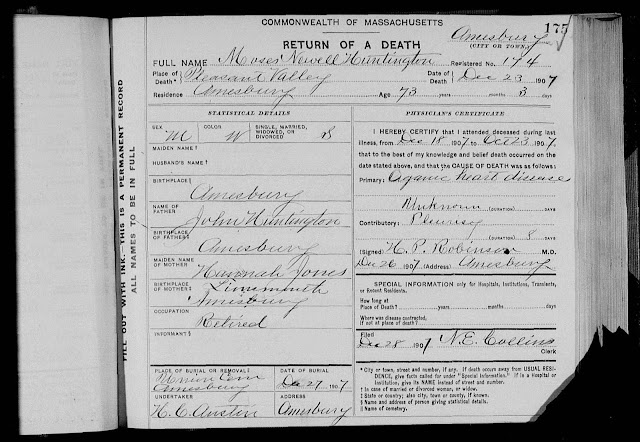 FILL OUT WITH INK.—THIS IS A PERMANENT RECORD
ALL NAMES TO BE IN FULL
175
COMMONWEALTH OF MASSACHUSETTS
RETURN OF A DEATH
Amesbury
(CITY OR TOWN.)
FULL NAME Moses Newell Huntington Registered No. 174
Place of Death* Pleasant Valley Date of Death Dec 23 1907
Residence Amesbury Age 73 years months 3 days
STATISTICAL DETAILS
SEX M COLOR W SINGLE, MARRIED, WIDOWED, OR DIVORCED S
MAIDEN NAME†
HUSBAND'S NAME†
BIRTHPLACE‡
Amesbury
NAME OF FATHER
John Huntington
BIRTHPLACE OF FATHER‡
Amesbury
MAIDEN NAME OF MOTHER
Hannah Jones
BIRTHPLACE OF MOTHER‡
Amesbury
OCCUPATION
Retired
INFORMANT§
PLACE OF BURIAL OR REMOVAL‖
Union Cem
Amesbury
DATE OF BURIAL
Dec 27 1907
UNDERTAKER
H. C. Austin
ADDRESS
Amesbury
PHYSICIAN'S CERTIFICATE
I HEREBY CERTIFY that I attended deceased during last
illness, from Dec 18 1907 to 23 1907
that to the best of my knowledge and belief death occurred on the
date stated above, and that the CAUSE OF DEATH was as follows:
Primary: Organic heart disease
Unknown (DURATION) DAYS
Contributory: Pleurisy
(DURATION) 8 DAYS
(Signed) H. P. Robinson M.D.
Dec 26 1907 (Address) Amesbury
SPECIAL INFORMATION only for Hospitals, Institutions, Transients,
or Recent Residents.
How long at
Place of Death? years months days
Where was disease contracted,
if not at place of death?
Filed
Dec 28 1907 N. E. Collins
Clerk
* City or town, street and number, if any. If death occurs away from USUAL RESIDENCE, give facts called for under "Special Information." If in a Hospital or
Institution, give its NAME instead of street and number.
† In case of married or divorced woman, or widow.
‡ State or country; also city, town or county, if known.
§ Name and address of person giving statistical details.
‖ Name of cemetery.